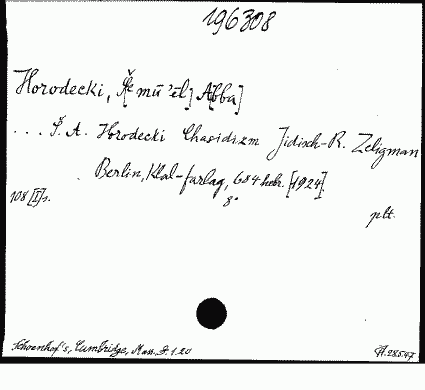 196308
Horodecki, Š[emū'ēl] A[bba]
... Š. A. Horodecki Chasidizm Jidisch-R. Zeligman
Berlin, Klal-farlag, 684 hebr. [1924].
108 [I] s. 8° plt.
Schoenhof's, Cambridge, Mass. $ 1.20
A. 28547